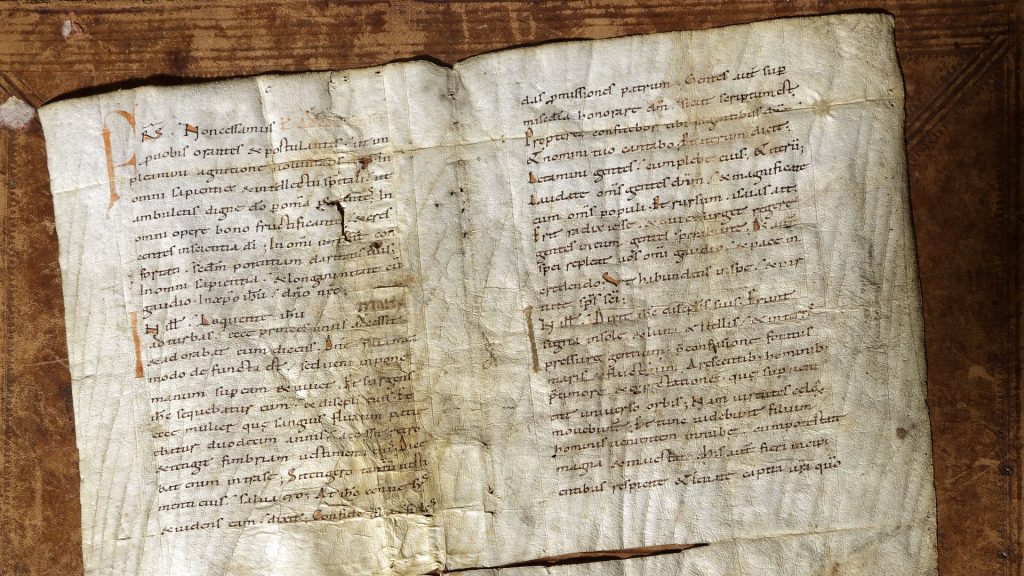 FRS. Non cessamus
p uobis orantes & postulantes ut im
pleamini agnitione uoluntatis ei in
omni sapientia & intellectu spitali ut
ambuletis digne do p omia In
omni opere bono fructificantes & cres
centes in scientia di; In omi uirtute con
fortati scdm potentiam claritatis eius
In omni sapientia & longanimitate cu
gaudio. In xpo ihu dno nro
In ill. Loquente ihu
ad turbas. ecce princeps unus accessit
& adorabat eum dicens. Dne filia mea
modo defuncta est. sed ueni inpone
manum sup eam & uiuet. Et surgens
ihs sequebatur eum & discipli eius. Et
ecce mulier que sanguinis fluxum patie
batur duodecim annis. accessit retro
& tetigit fimbriam uestimenti eius. Dice
bat enim intra se; Si tetigero tantu uesti
mentu eius. salua ero. At ihs conuersus
& uidens eam. dixit. Confide filia fides
das pmissiones patrum. Gentes aut sup
misedia honorare dm. sicut scriptum est
Propterea confitebor tibi in gentibus dne
& nomini tuo cantabo. Et iterum dicit.
Laetamini gentes cum plebe eius. & iteru;
Laudate oms gentes dnm. & magnificate
eum oms populi. Et rursum isaias ait.
Erit radix iesse. & qui exurget regere
gentes in eum gentes sperabunt. Ds aut
spei repleat uos omi gaudio. & pace in
credendo. Ut habundetis in spe. & uir
tute sps sci.
In ill. Dixit ihs discplis suis. Erunt
signa in sole & luna & stellis. & in terris
pressura gentium. p confusione sonitus
maris & fluctuum. Arescentibus hominib
p timore & expectatione. que sup uen
ent uniuerso orbi. Nam uirtutes celoru
mouebunt. Et tunc uidebunt filium
hominis uenientem in nube. cum potestate
magna & maiestate. His aut fieri incipi
entibus respicite & leuate capita ura qm